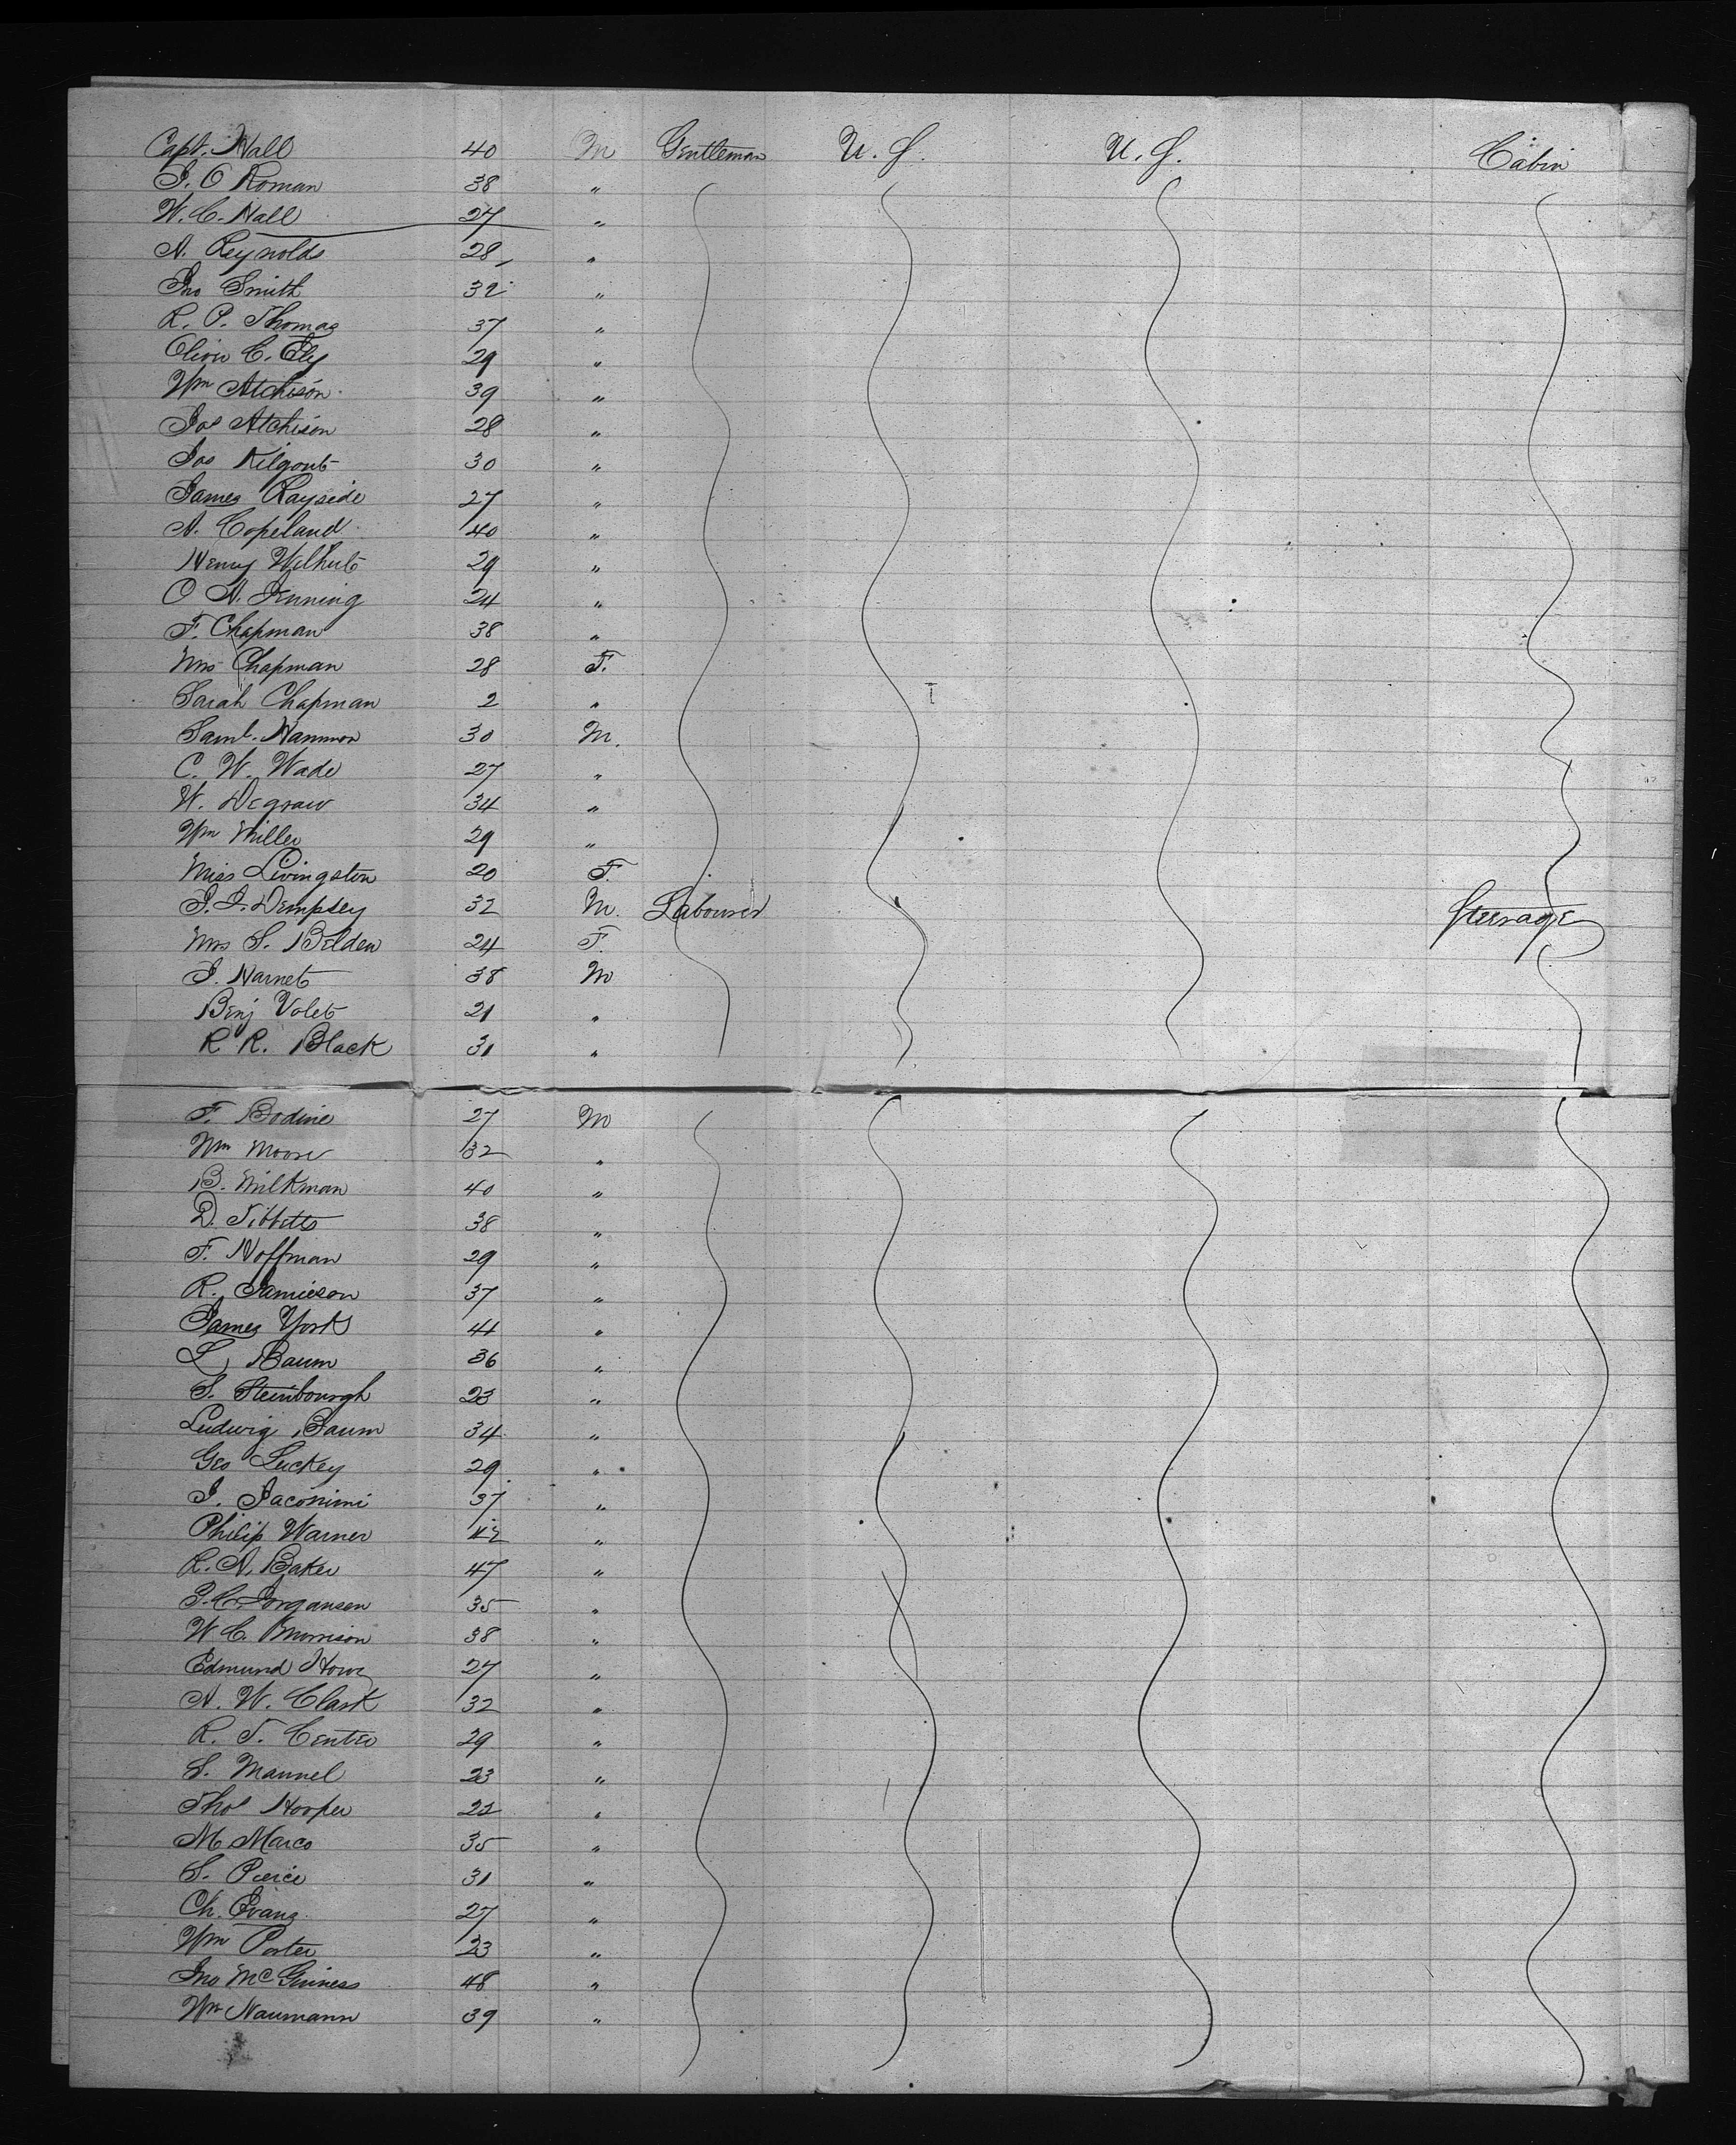 Capt. Hall 40 M Gentleman U. S. U. S. Cabin
J. O Roman 38 "
W. C. Hall 27 "
A. Reynolds 28 "
Jno Smith 32 "
R. P. Thomas 37 "
Oliver C. Ely 29 "
Wm Atchison 39 "
Jas Atchison 28 "
Jas Kilgont 30 "
James Rayside 27 "
A. Copeland 40 "
Henry 29 "
O H. Jenning 24 "
F. Chapman 38 "
Mrs Chapman 28 F.
Sarah Chapman 2 "
Saml. Hammon 30 M.
C. W. Wade 27 "
W. Degraw 34 "
Wm Miller 29 "
Miss Livingston 20 F.
J. J. Dempsey 32 M. Labourer Steerage
Mrs S. Belden 24 F.
J. Harnet 38 M
Benj Volet 21 "
R R. Black 31 "
F. Bodine 27 M
Wm Moore 32 "
B. Milkman 40 "
D. Tibbetts 38 "
F. Hoffman 29 "
R. Jamieson 37 "
James York 44 "
L. Baum 36 "
S. Steinbourgh 23 "
Ludwig Baum 34 "
Geo Luckey 29 "
J. Jaconimi 37 "
Philip Warner 42 "
R. A. Baker 47 "
P. C. Jorgansen 35 "
W C. Morrison 38 "
Edmund Howe 27 "
A. W. Clark 32 "
R. T. Center 29 "
S. Mannel 23 "
Thos Hooper 22 "
M. Marco 35 "
S. Peirce 31 "
Ch. Evans 27 "
Wm Porter 23 "
Jno McGuiness 48 "
Wm Naumann 39 "